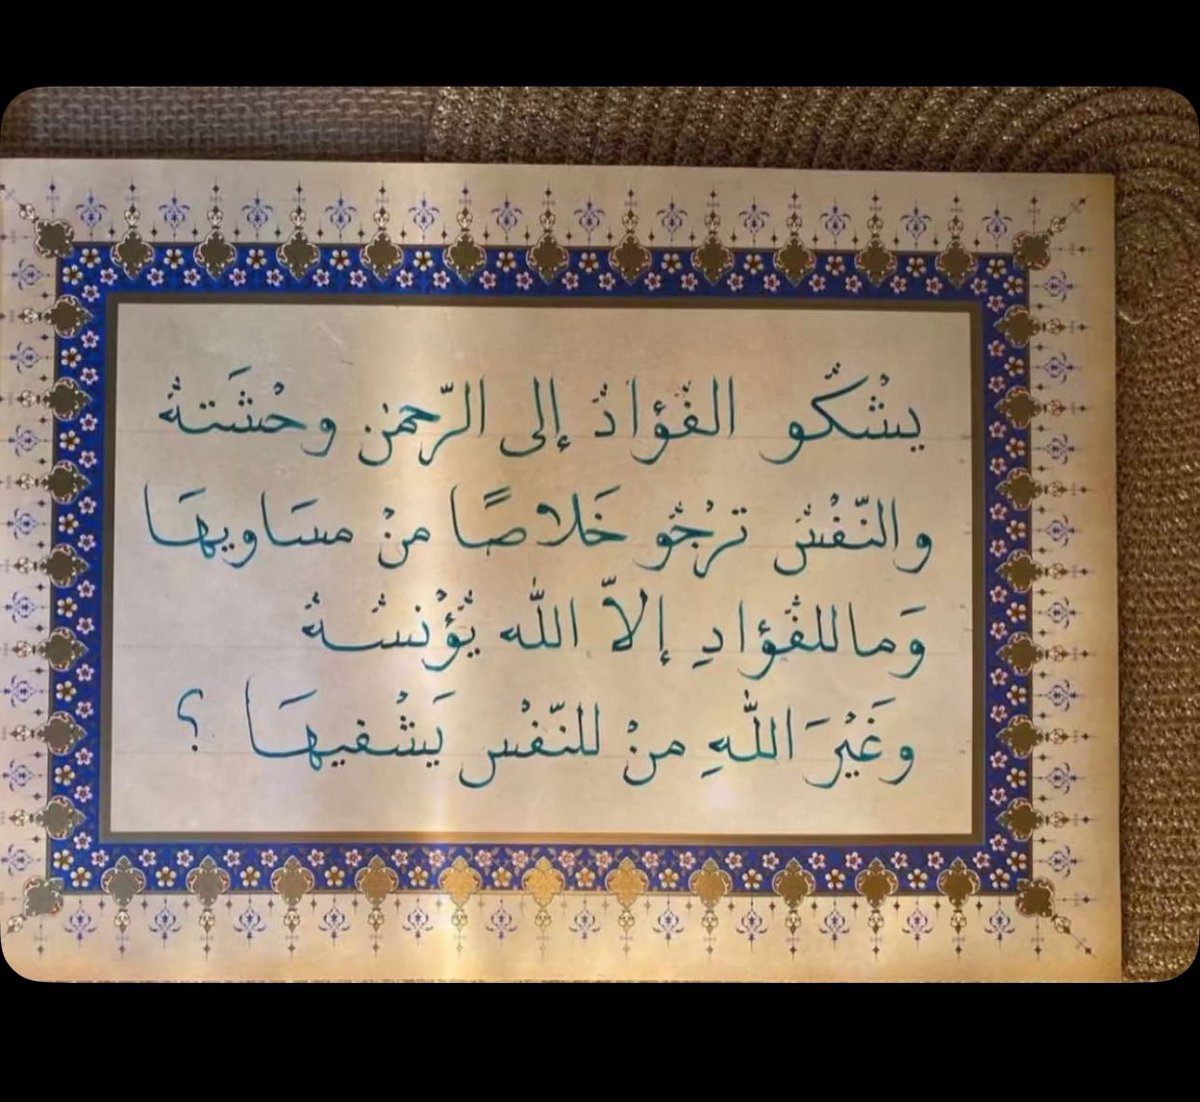 يشْكُو الفُؤادُ إلى الرّحمن وحْشَتهُ
والنّفْسُ ترْجُو خَلاصًا منْ مسَاويهَا
وَما للفُؤادِ إلاّ اللّٰه يُؤْنسُهُ
وغَيْرَ اللّٰهِ منْ للنّفْس يَشْفيهَا ؟